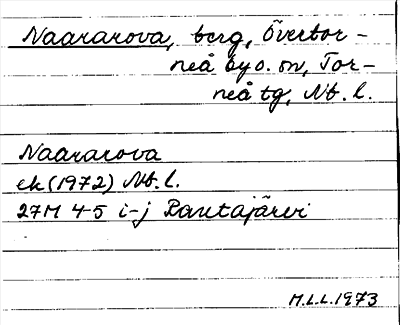 Naararova, berg, Övertor-
neå by o. sn, Tor-
neå tg, Nb. l.
Naararova
ek (1972) Nb. l.
27M 4-5 i-j Rautajärvi
M.L.L. 1973